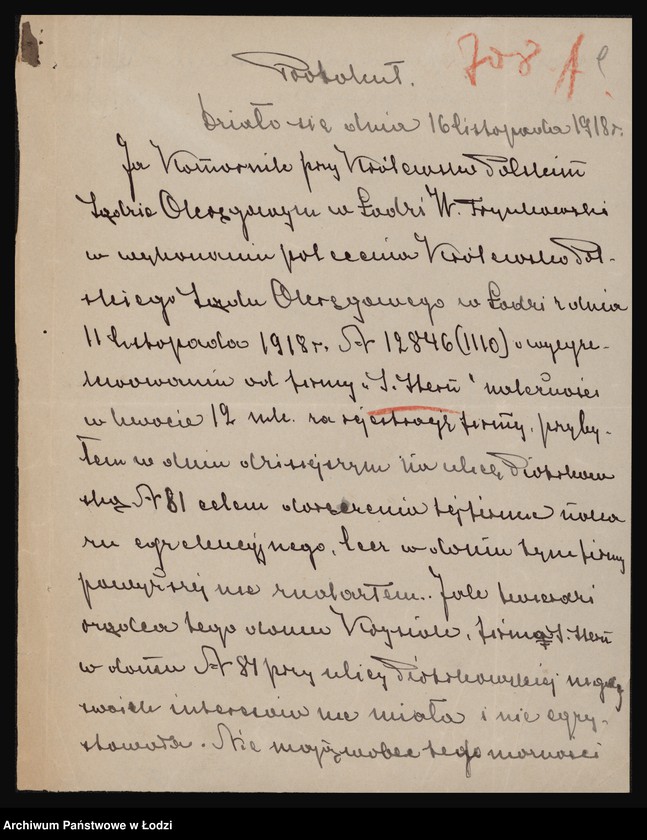 708 A
Protokuł.
Działo się dnia 16 listopada 1918 r.
Ja Komornik przy Królewsko Polskim
Sądzie Okręgowym w Łodzi W. Trynkowski
w wykonaniu polecenia Królewsko Pol-
skiego Sądu Okręgowego w Łodzi z dnia
11 listopada 1918 r. № 12846 (1110) o wyegze-
kwowaniu od firmy „S. Stern" należności
w kwocie 12 mk. za rejestrację firmy, przyby-
łem w dniu dzisiejszym na ulicę Piotrkow
ską № 81 celem doręczenia tej firmie naka
zu egzekucyjnego, lecz w domu tym firmy
powyższej nie znalazłem.. Jak twierdzi
rządca tego domu Krysiak, firma S. Stern
w domu № 81 przy ulicy Piotrkowskiej nigdy
swoich interesów nie miała i nie egzy-
stowała. Nie mając wobec tego możności
Archiwum Państwowe w Łodzi